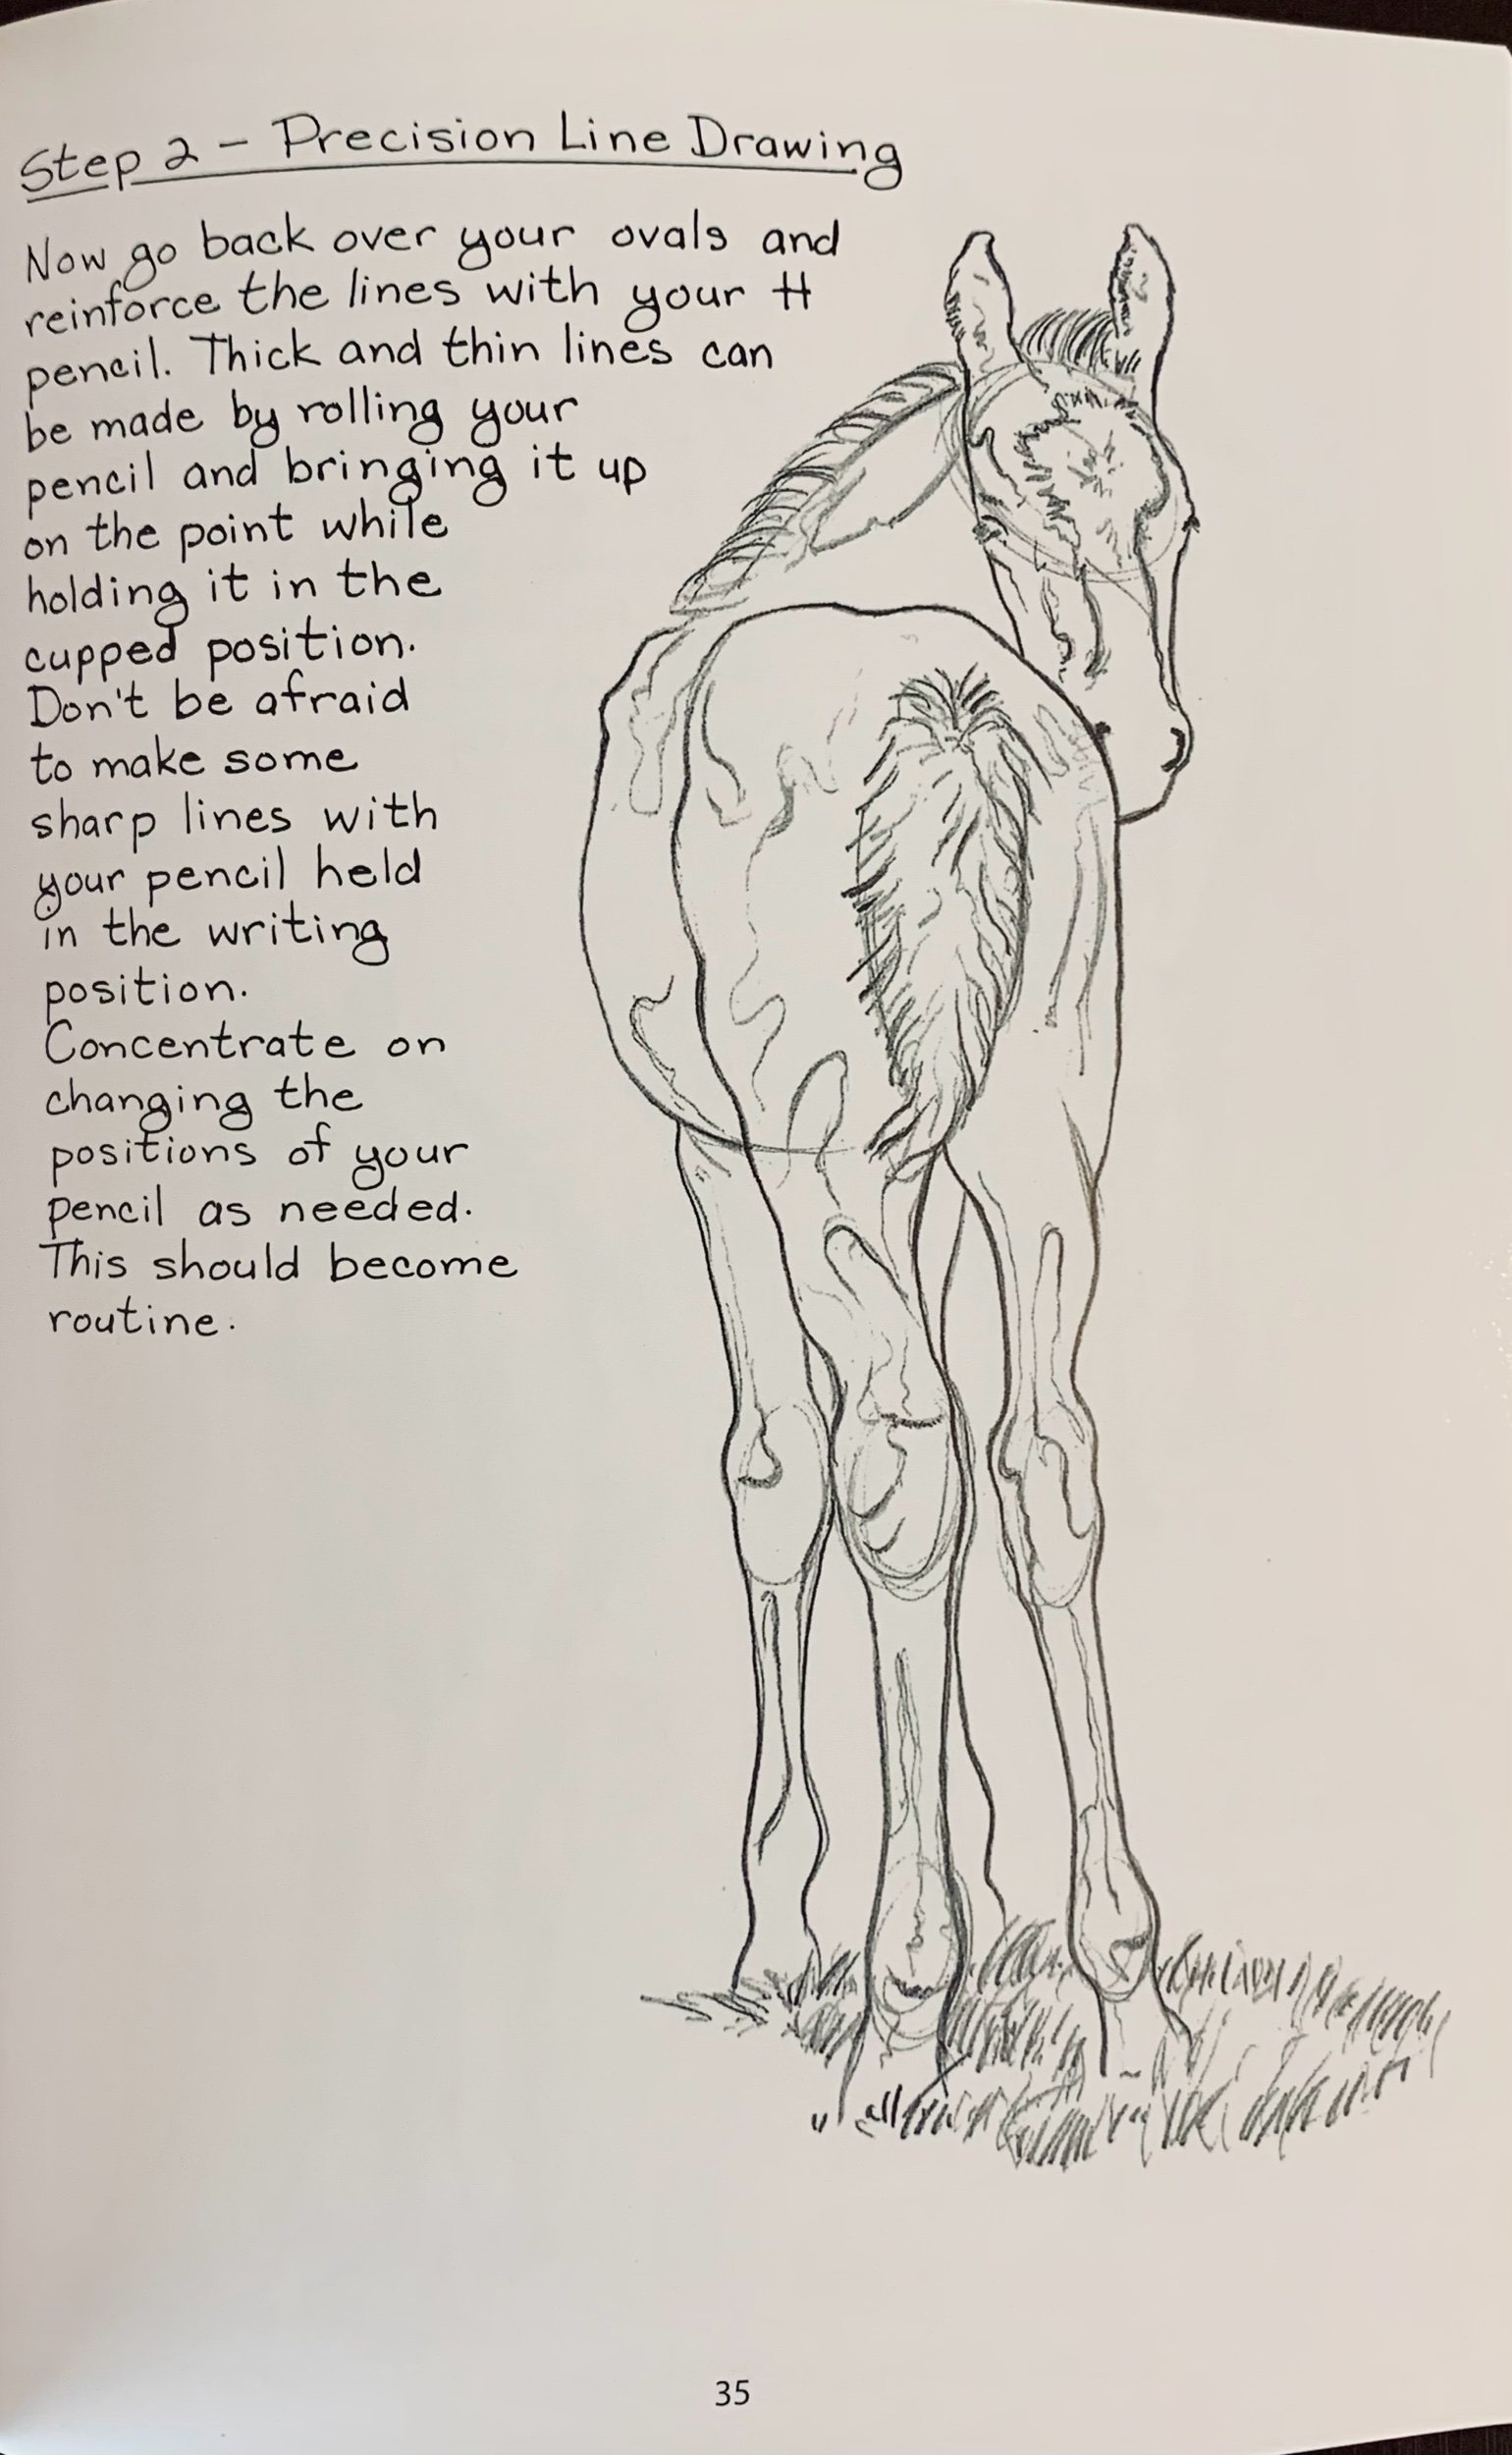 Step 2 - Precision Line Drawing
Now go back over your ovals and
reinforce the lines with your H
pencil. Thick and thin lines can
be made by rolling your
pencil and bringing it up
on the point while
holding it in the
cupped position.
Don't be afraid
to make some
sharp lines with
your pencil held
in the writing
position.
Concentrate on
changing the
positions of your
pencil as needed.
This should become
routine.
35